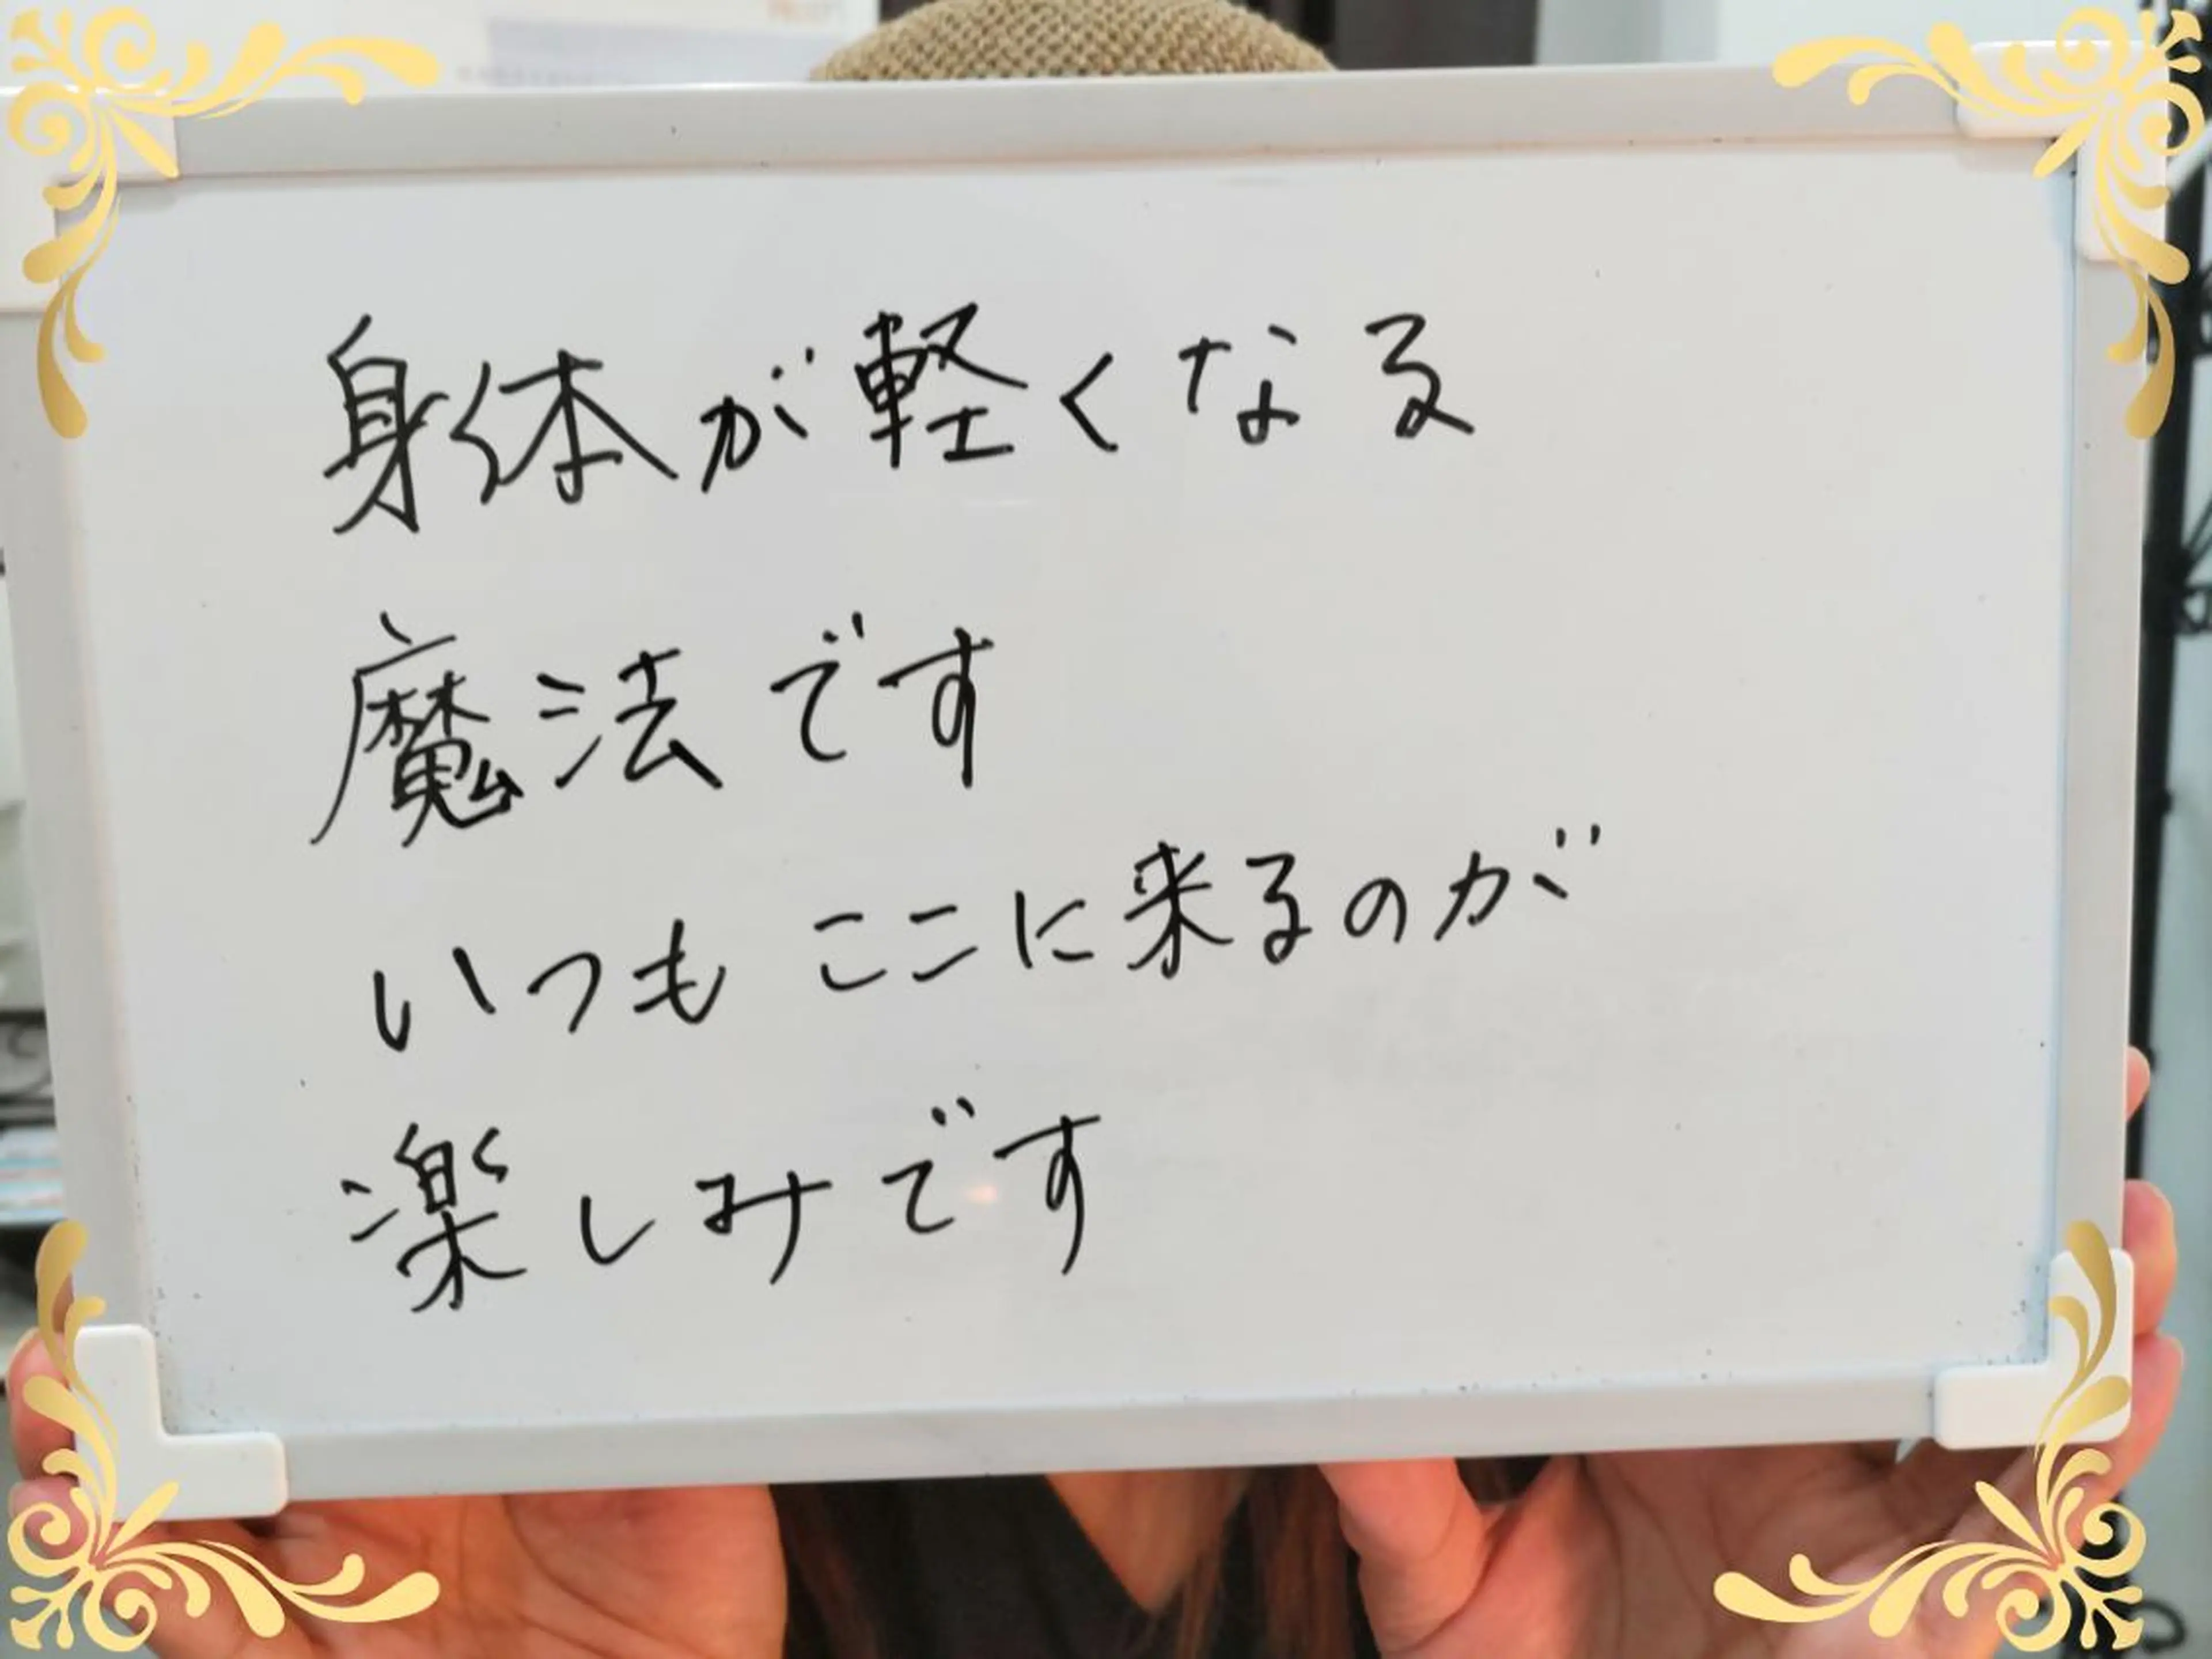 身体が軽くなる
魔法です
いつもここに来るのが
楽しみです